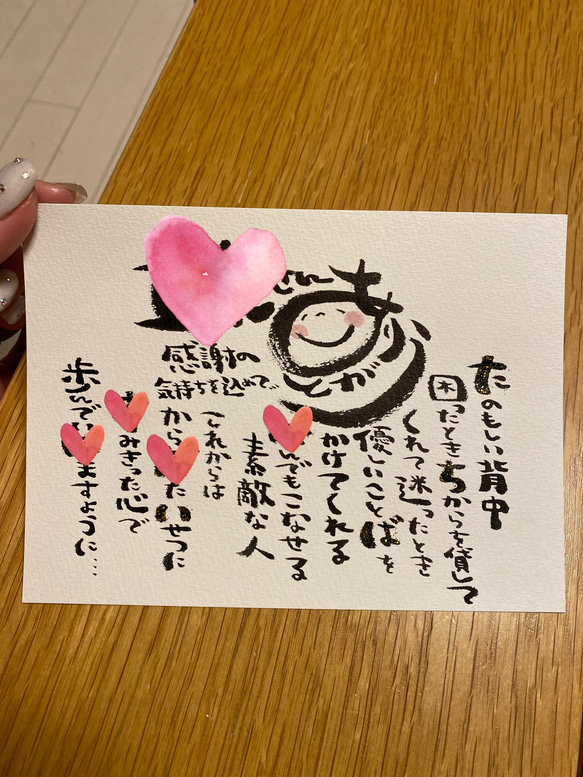 さん
ありがとう
感謝の
気持ちを込めて
たのもしい背中
困ったときちからを貸して
くれて迷ったとき
優しいことばを
かけてくれる
んでもこなせる
素敵な人
これからは
から たいせつに
みきった心で
歩んでい ますように…